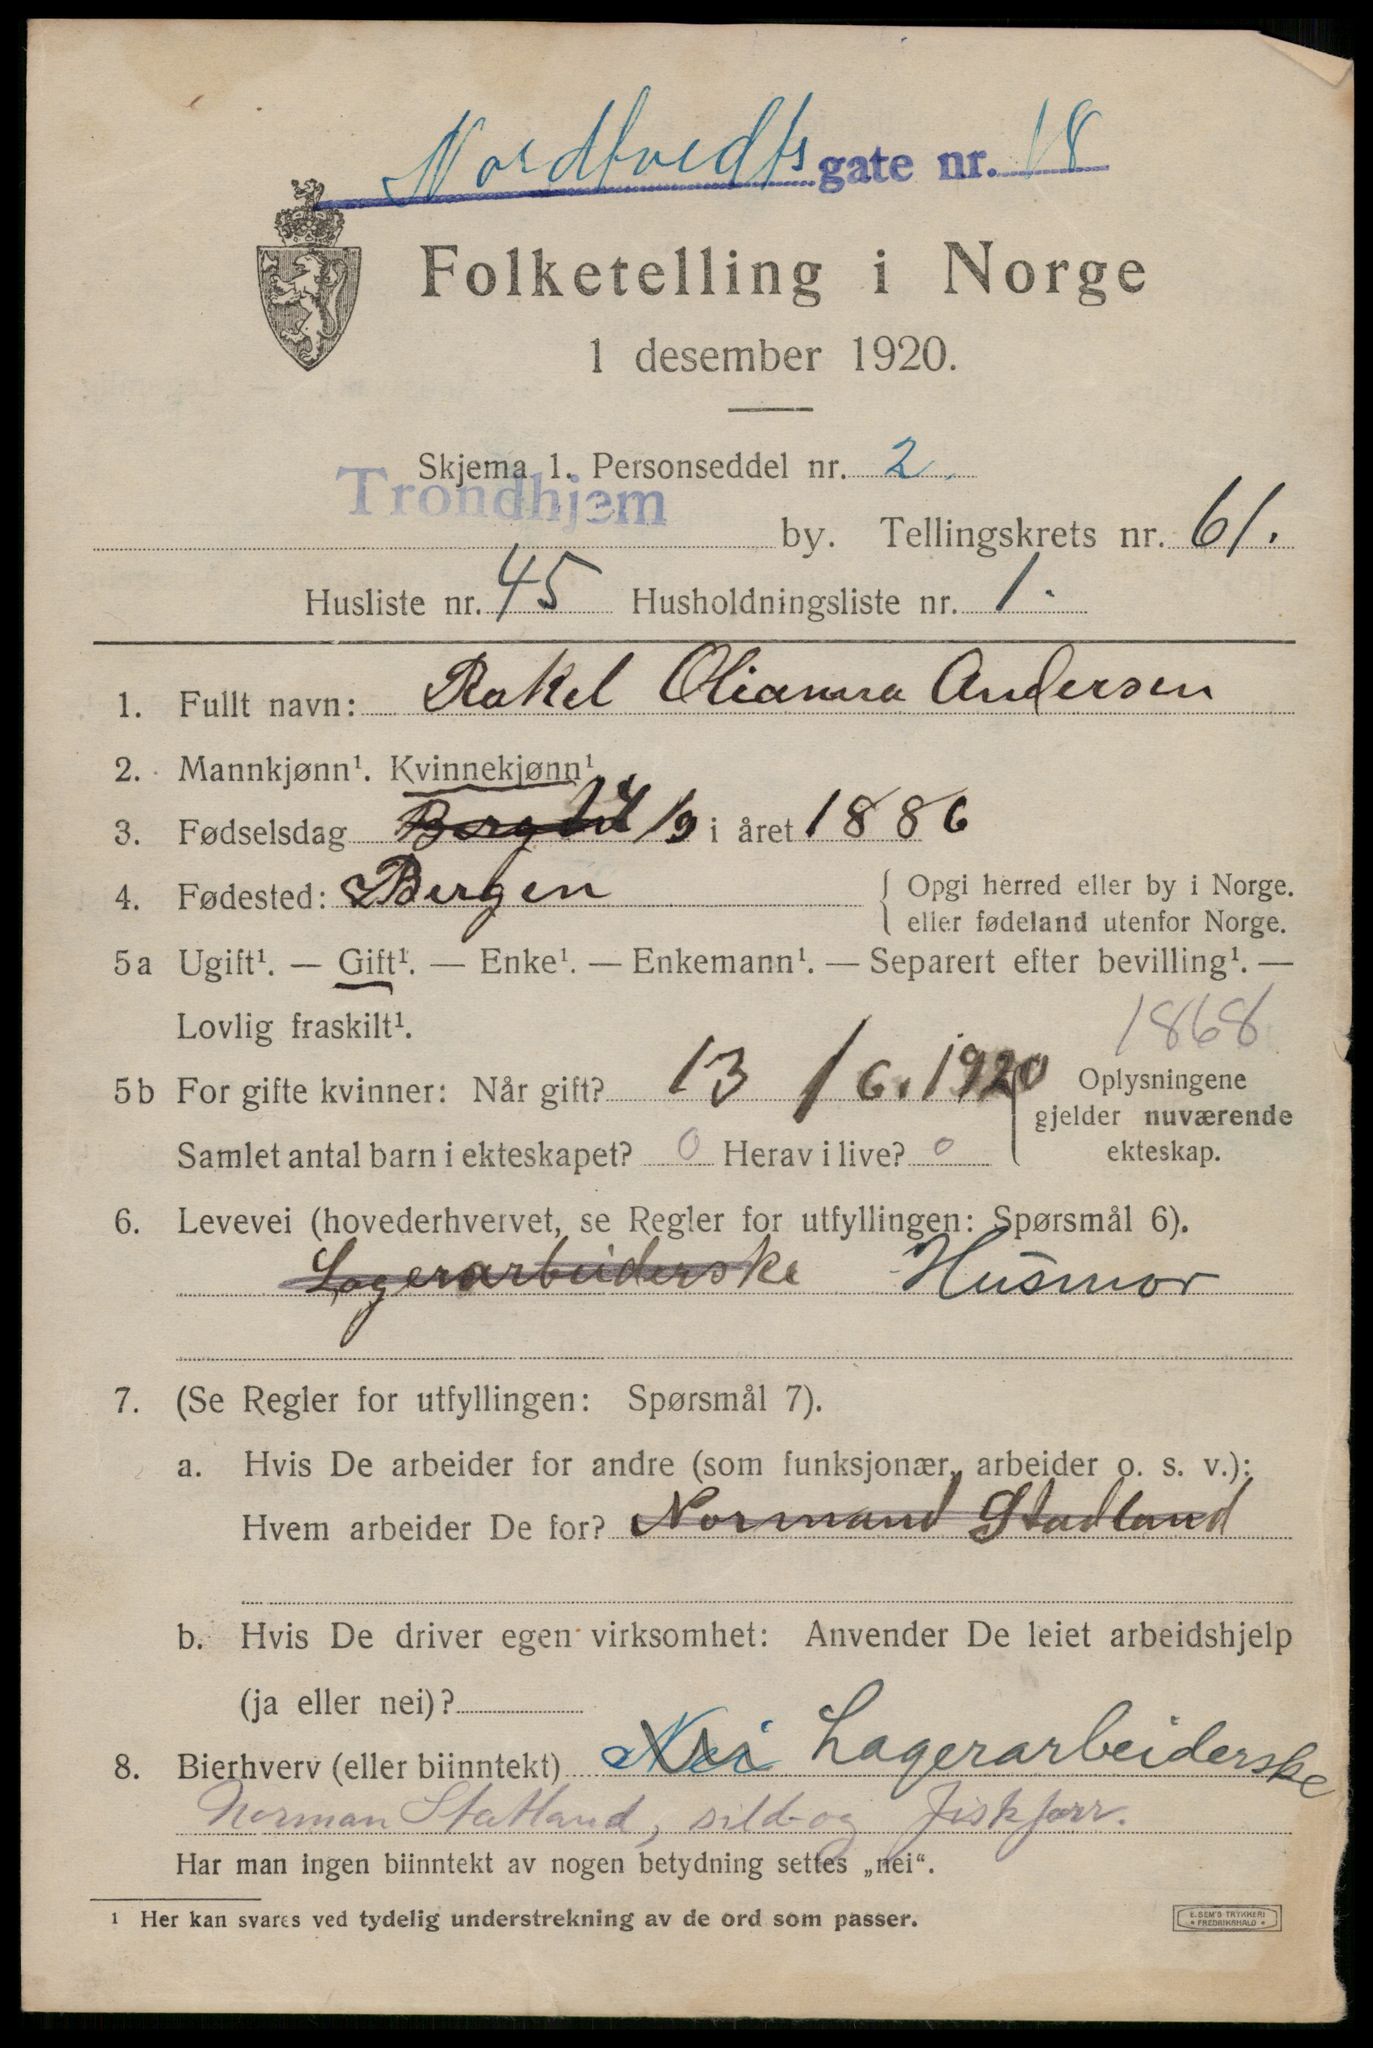 Nordtvedts gate nr. 18
Folketelling i Norge
1 desember 1920.
Skjema 1. Personseddel nr. 2.
Trondhjem by. Tellingskrets nr. 61.
Husliste nr. 45 Husholdningsliste nr. 1.
1. Fullt navn: Rakel Olianna Andersen
2. Mannkjønn¹. Kvinnekjønn¹
3. Fødselsdag /9 i året 1886
4. Fødested: Bergen { Opgi herred eller by i Norge.
eller fødeland utenfor Norge.
5a Ugift¹. — Gift¹. — Enke¹. — Enkemann¹. — Separert efter bevilling¹. —
Lovlig fraskilt¹.
1868
5b For gifte kvinner: Når gift? 13/6. 1920
Samlet antal barn i ekteskapet? 0 Herav i live? 0
Oplysningene
gjelder nuværende
ekteskap.
6. Levevei (hovederhvervet, se Regler for utfyllingen: Spørsmål 6).
Lagerarbeiderske Husmor
7. (Se Regler for utfyllingen: Spørsmål 7).
a. Hvis De arbeider for andre (som funksjonær, arbeider o. s. v.):
Hvem arbeider De for? Normand Stadland
b. Hvis De driver egen virksomhet: Anvender De leiet arbeidshjelp
(ja eller nei)?
8. Bierhverv (eller biinntekt) Nei Lagerarbeiderske
Norman Statland, sild- og fiskforr.
Har man ingen biinntekt av nogen betydning settes „nei“.
¹ Her kan svares ved tydelig understrekning av de ord som passer.
E. SEM'S TRYKKERI
FREDRIKSHALD